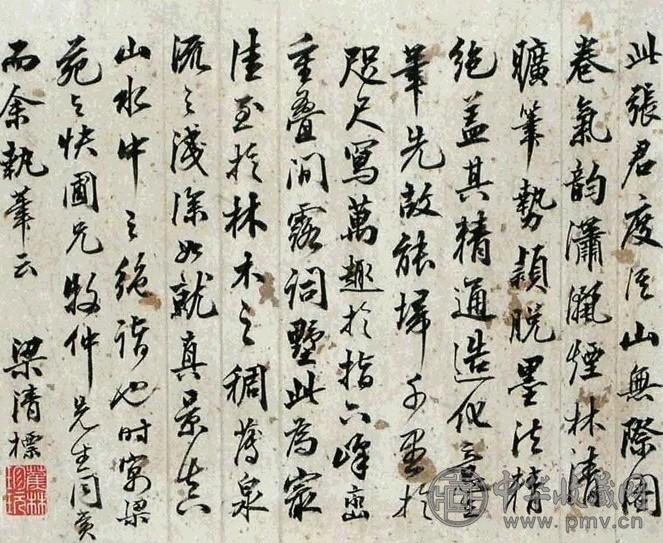 此張君度溪山無際圖
卷氣韵瀟灑煙林清
曠筆勢穎脫墨法精
絕蓋其精通造化意在
筆先故能埽千里於
咫尺寫萬趣於指下峰巒
重疊間露祠墅此為最
佳至於林木之稠薄泉
流之淺深如就真景真
山水中之絕詣也時寓梁
苑之快圃兄牧仲先生同賞
而余執筆云
梁清標
蕉林
珍玩
中华收藏网
www.pmv.cn